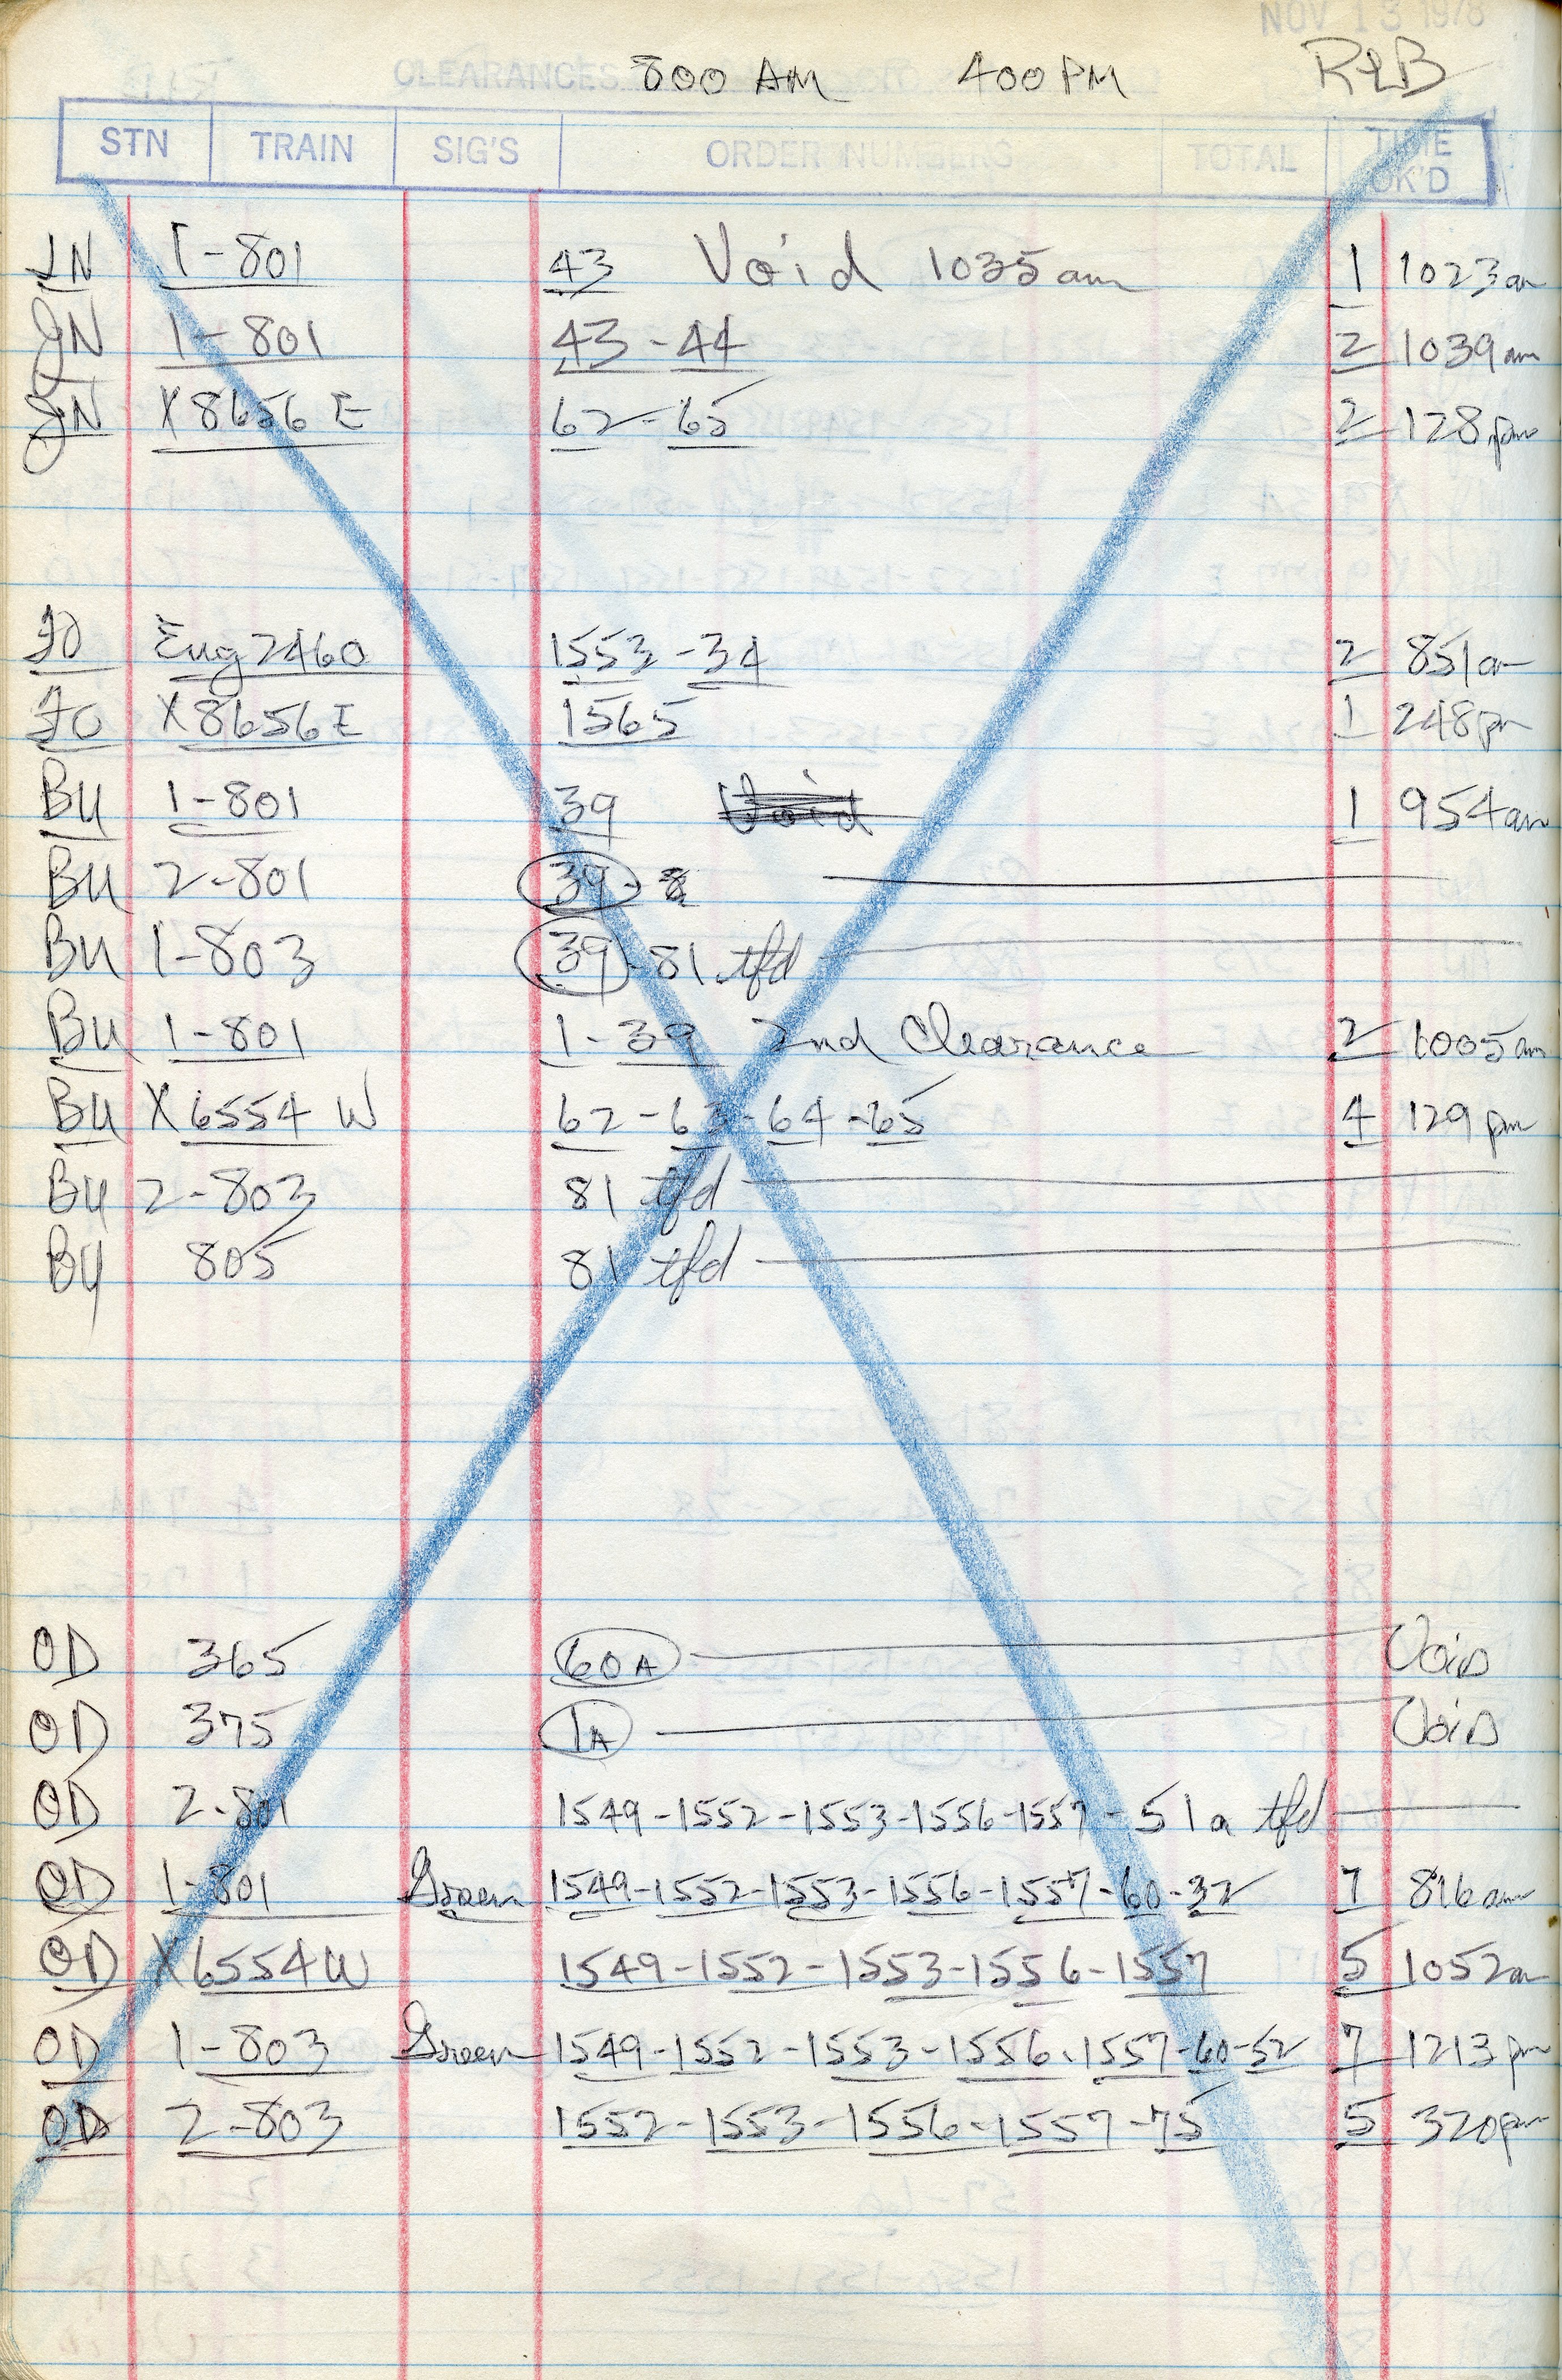 NOV 13 1978
CLEARANCES 800 AM 400 PM RLB
STN TRAIN SIG'S ORDER NUMBERS TOTAL TIME OK'D
JN 1-801 43 Void 1035am 1 1023am
JN 1-801 43-44 2 1039am
JN X8656 E 62-65 2 128pm
Eng 2460 1553-34 2 851am
X8656 E 1565 1 248pm
BU 1-801 39 Void 1 954am
BU 2-801 39-
BU 1-803 39-81 tfd
BU 1-801 1-39 2nd Clearance 2 1005am
BU X6554 W 62-63-64-65 4 129pm
BU 2-803 81 tfd
BU 805 81 tfd
OD 365 60A Void
OD 375 1A Void
OD 2-801 1549-1552-1553-1556-1557-51a tfd
OD 1-801 Green 1549-1552-1553-1556-1557-60-32 7 816am
OD X6554W 1549-1552-1553-1556-1557 5 1052am
OD 1-803 Green 1549-1552-1553-1556-1557-60-52 7 1213pm
OD 2-803 1552-1553-1556-1557-75 5 320pm